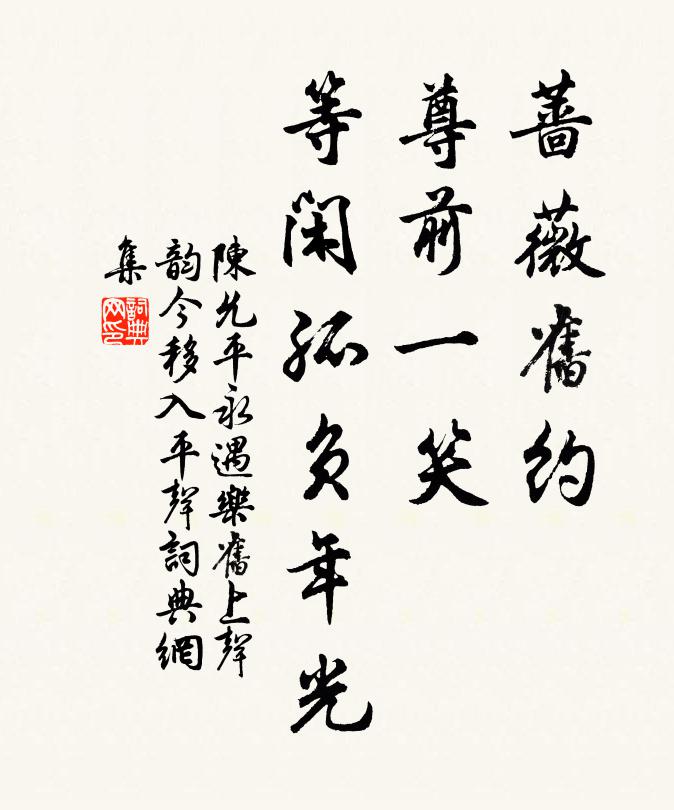 薔薇舊約
尊前一笑
等閑孤負年光
陳允平永遇樂舊上聲
韵今移入平聲詞典網
集
詞典
网印